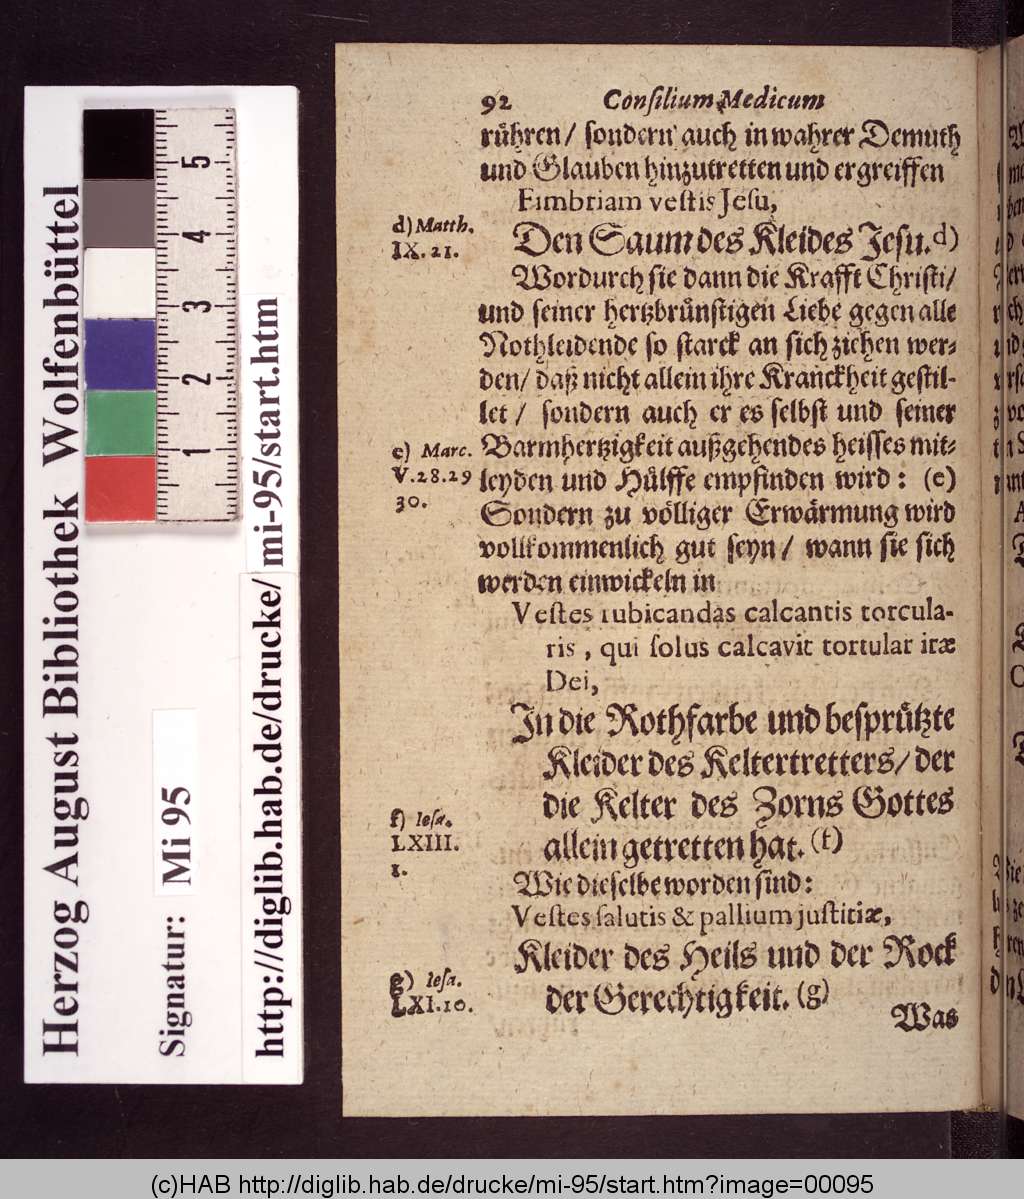 92 Consilium Medicum
rühren/ sondern auch in wahrer Demuth
und Glauben hinzutretten und ergreiffen
Fimbriam vestis Jesu,
d) Matth.
IX. 21.
Den Saum des Kleides Jesu. d)
Wordurch sie dann die Krafft Christi/
und seiner hertzbrünstigen Liebe gegen alle
Nothleidende so starck an sich ziehen wer-
den/ daß nicht allein ihre Kranckheit gestil-
let/ sondern auch er es selbst und seiner
e) Marc.
V. 28. 29
30.
Barmhertzigkeit außgehendes heisses mit-
leyden und Hülffe empfinden wird: (e)
Sondern zu völliger Erwärmung wird
vollkommenlich gut seyn/ wann sie sich
werden einwickeln in
Vestes rubicandas calcantis torcula-
ris, qui solus calcavit tortular iræ
Dei,
In die Rothfarbe und besprützte
Kleider des Keltertretters/ der
die Kelter des Zorns Gottes
allein getretten hat. (f)
f) Iesa.
LXIII.
1.
Wie dieselbe worden sind:
Vestes salutis & pallium justitiæ,
Kleider des Heils und der Rock
der Gerechtigkeit. (g)
g) Iesa.
LXI. 10.
Was
Herzog August Bibliothek Wolfenbüttel
Signatur: Mi 95
http://diglib.hab.de/drucke/mi-95/start.htm
5
4
3
2
1
(c)HAB http://diglib.hab.de/drucke/mi-95/start.htm?image=00095